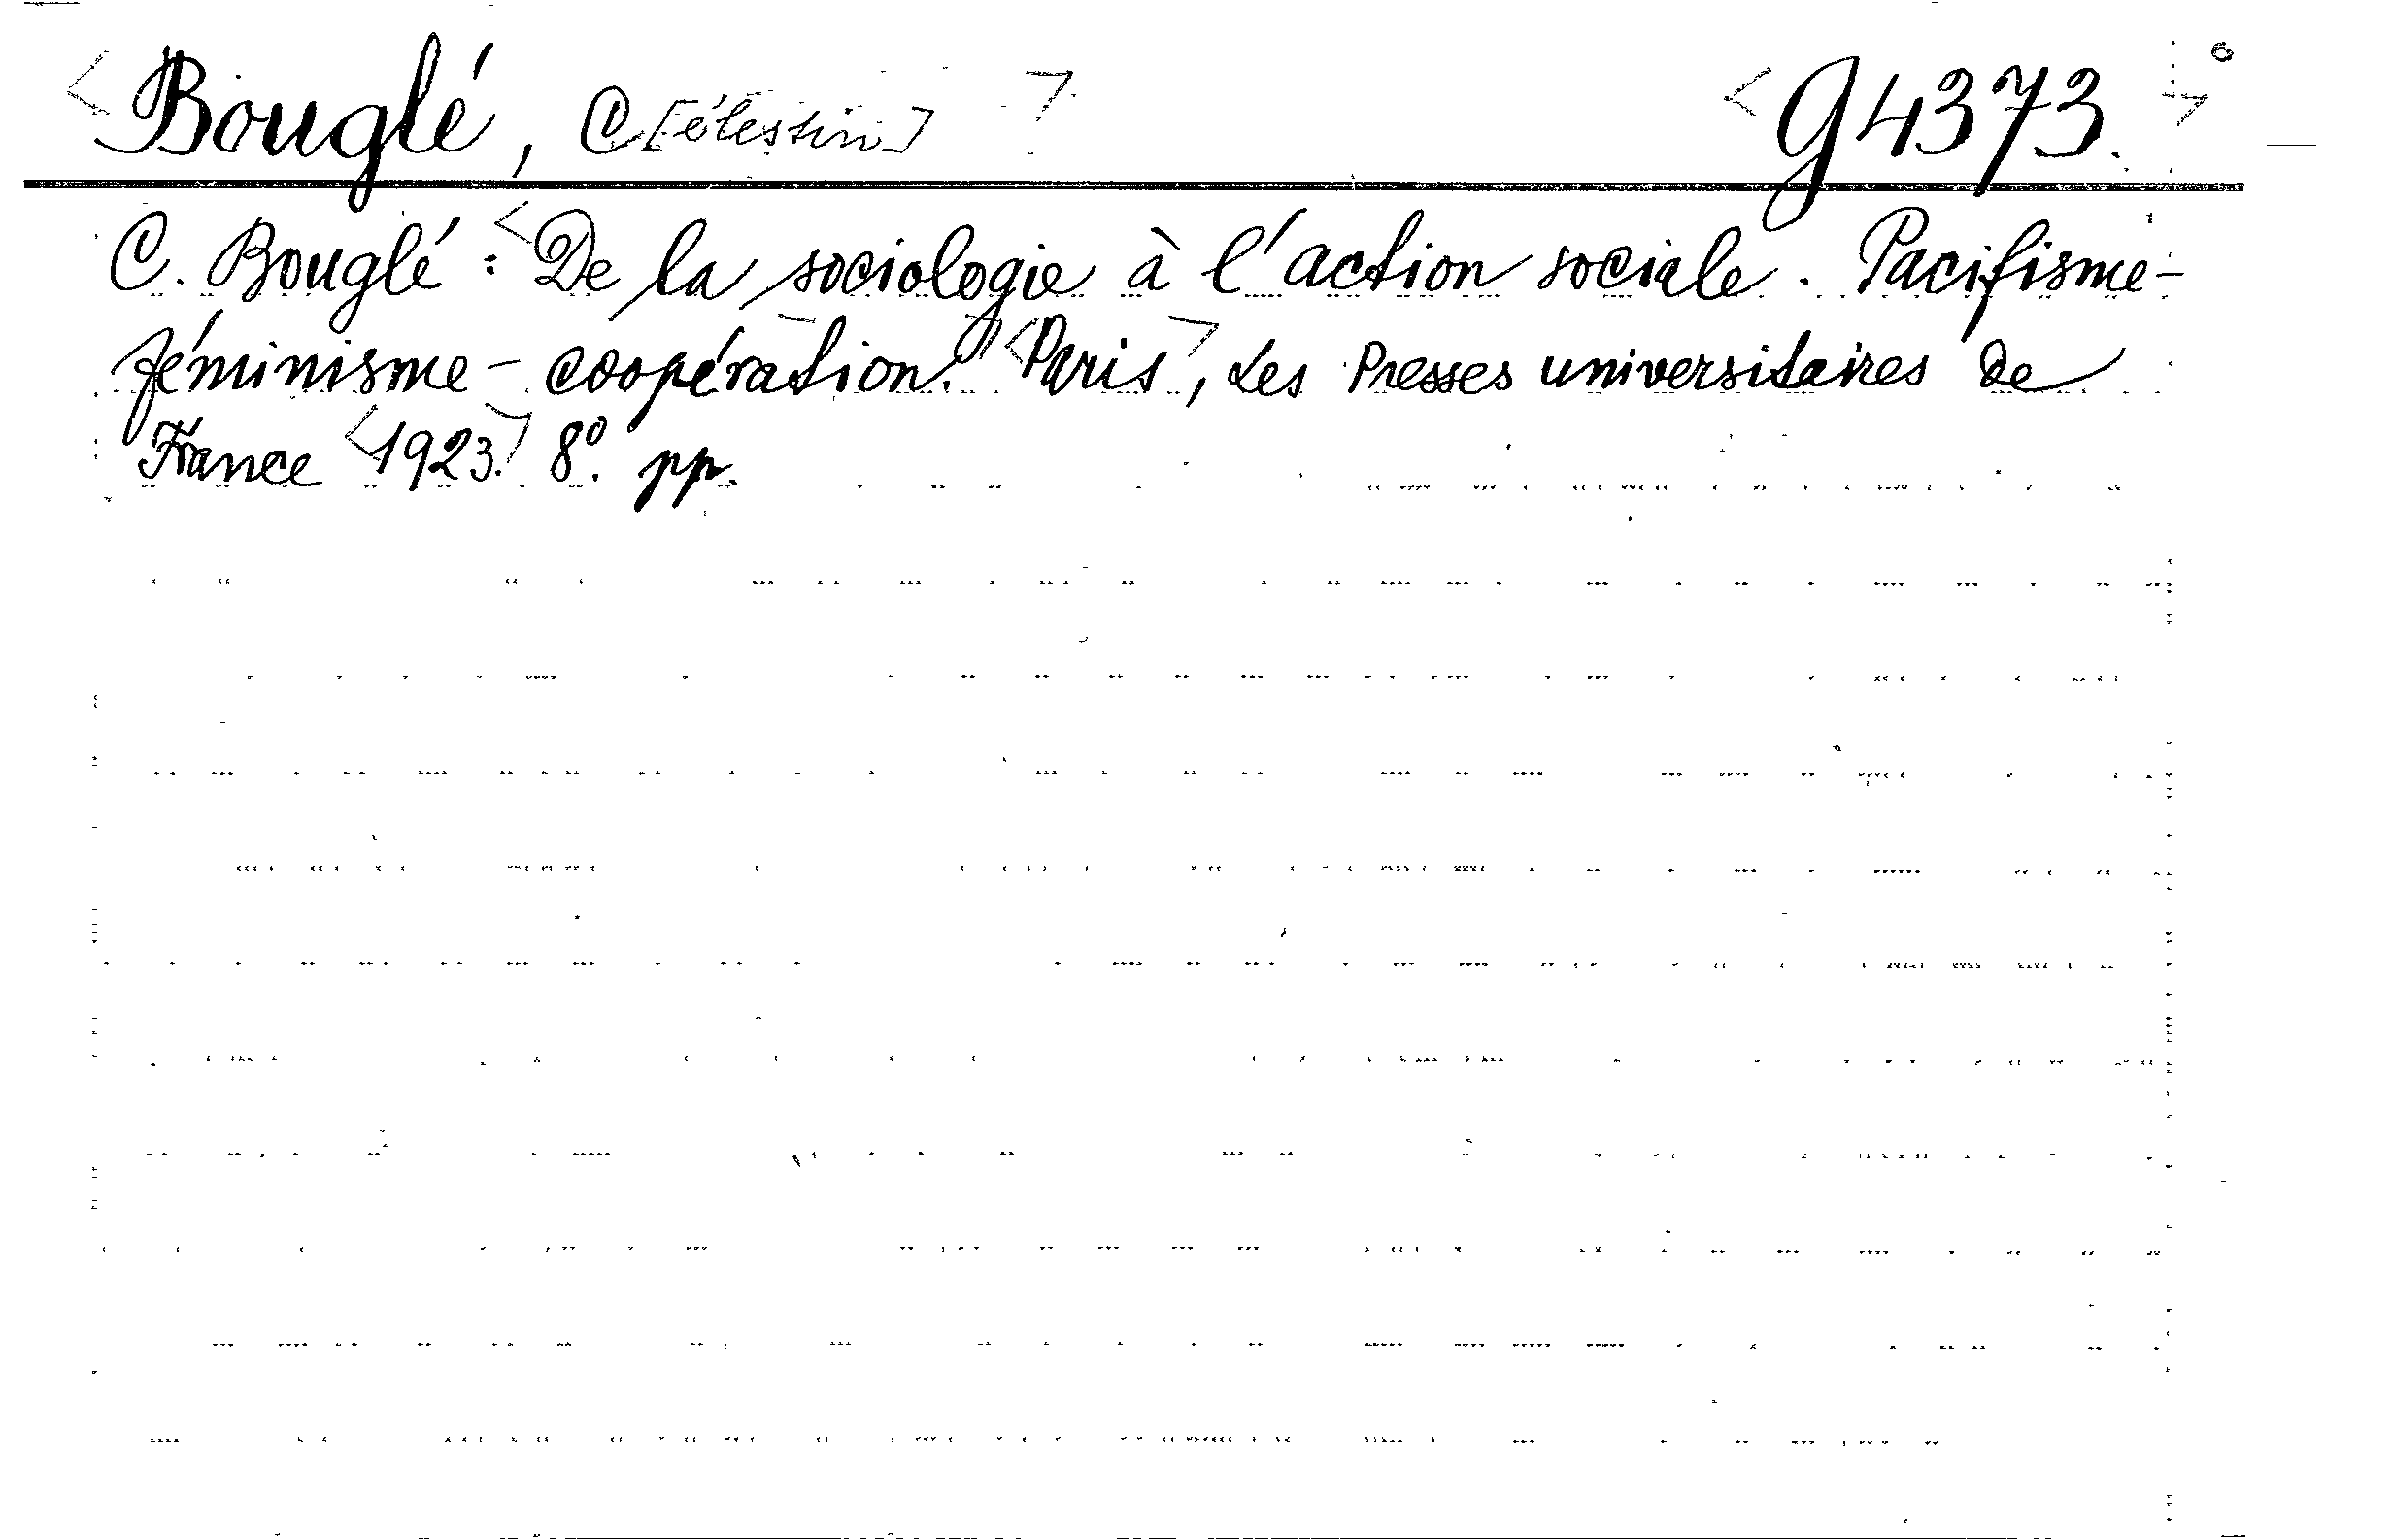 <Bouglé, C[élestin]> <g4373.>
C. Bouglé: <De la sociologie à l'action sociale. Pacifisme-
féminisme - coopération.> <Paris>, Les Presses universitaires de
France <1923.> 8º. pp.